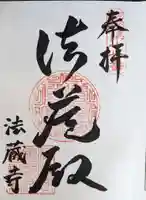 奉拝
法蔵殿
法蔵寺